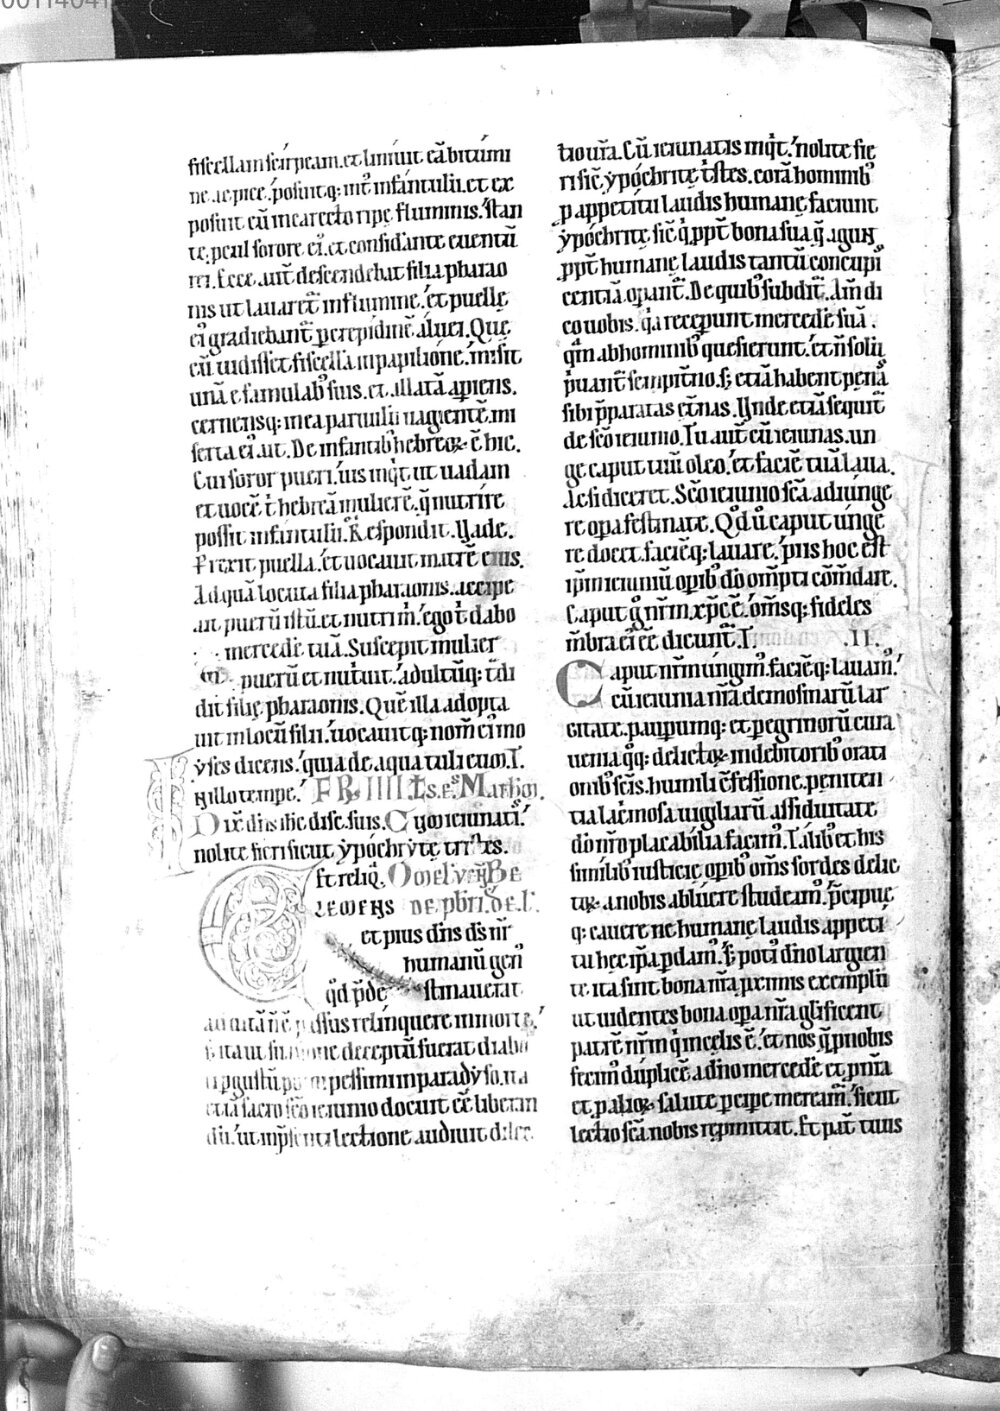 fiscellam scirpeam. et liniuit eā bitumi
ne. ac pice. posuitq; intꝰ infantulū. et ex
posuit eū in carecto ripę fluminis. stan
te. pcul sorore ei. et considerante euentū
rei. Ecce. aut̄ descendebat filia pharao
nis ut lauaret̄ in flumine. et puellę
eiꝰ gradiebant̄ ꝑ crepidinē aluei. Que
cū uidisset fiscellā in papilione. misit
unā e famulabꝰ suis. et allatā aꝑiens.
cernensq; in ea paruulū uagientē. mi
serta eiꝰ. ait. De infantibꝰ hebreoꝝ ē hic.
Cui soror pueri. uis inqͥt ut uadam
et uocē t hebreā mulierē. q̄ nutrire
possit infantulū. Respondit. Vade.
Perrexit puella. et uocauit matrē eius.
Ad quā locuta filia pharaonis. accipe
ait puerū istū. et nutri m̄. ego t dabo
mercedē tuā. Suscepit mulier
puerū et nutriuit. adultūq; tͣdi
dit filię pharaonis. Quē illa adopta
uit in locū filii. uocauitq; nom̄ eiꝰ mo
yses dicens. quia de aqua tuli eum. I
n illo tempr̄e. FR. IIII. Ls. e. s. Matheū.
Dix̄ dn̄s ihc disc. suis. Cum ieiunatis.
nolite fieri sicut ypochrytę tristes.
et reliq̄. Omel. uen̄. Be
ę et pius dn̄s ds̄ nr̄
humanū gen̄
qd p̄de stinauerat
passus relinquere in morte.
deceptū fuerat diabo
pessimi in paradyso. ita
etiā sacro scō ieiunio docuit eē liberan
dū. ut in p̄senti lectione audiuit dilec
tio ur̄a. Cū ieiunatis inqͥt. nolite fie
ri sic̄ ypochritę tͥstes. corā hominibꝰ
ꝓ appetitu laudis humanę faciunt
ypochritę sic̄ qͥ ꝓpt̄ bona sua q̄ agunt
ꝓpt̄ humanę laudis tantū concupi
scentiā opant̄. De quibꝰ subdit̄. Am̄ di
co uobis. qͥa receꝑunt mercedē suā.
qͣm ab hominibꝰ quesierunt. et n̄ solū
p̄uant̄ sempit̄no. s; etiā habent penā
sibi p̄paratas et̄nas. Vnde etiā sequit̄
de scō ieiunio. Tu aut̄ cū ieiunas. un
ge caput tuū oleo. et faciē tuā laua.
Ac si diceret. Scō ieiunio scā adiunge
re opa festinate. Qd u̅ caput unge
re docet. faciēq; lauare. prius hoc est
ip̄m ieiuniū opibꝰ dō om̄pti com̄dare.
Caput g̊ nr̄m xp̄c ē. om̄sq; fideles
m̄bra eiꝰ eē dicunt̄. T. .II.
Caput nr̄m ungim̄. faciēq; lauam̄.
cū ieiunia nr̄a elemosinarū lar
gitate. pauꝑumq; et ꝑegrinorū cura
uenia qͥq; delictoꝝ in debitoribꝰ orati
onibꝰ scis. humili c̄fessione. peniten
tia lacͥmosa uigiliarū. assiduitate
dō nr̄o placabilia facim̄. Talibꝰ et his
similibꝰ iusticię opibꝰ om̄s sordes delic
toꝝ. a nobis abluere studeam̄. p̄cipuę
q; cauere ne humanę laudis appeti
tu hec ip̄a ꝑdam̄. s; potiꝰ dn̄o largien
te. ita sint bona nr̄a ꝓximis exemplū
ut uidentes bona opa nr̄a glificent
patrē nr̄m qͥ in celis ē. et nos qͥ ꝓ nobis
fecim̄ duplicē a dn̄o mercedē et ꝓ nr̄a
et ꝓ alioꝝ salute ꝑcipe meream̄. sicut
lectio scā nobis repͥmittit. Et pat̄ tuus